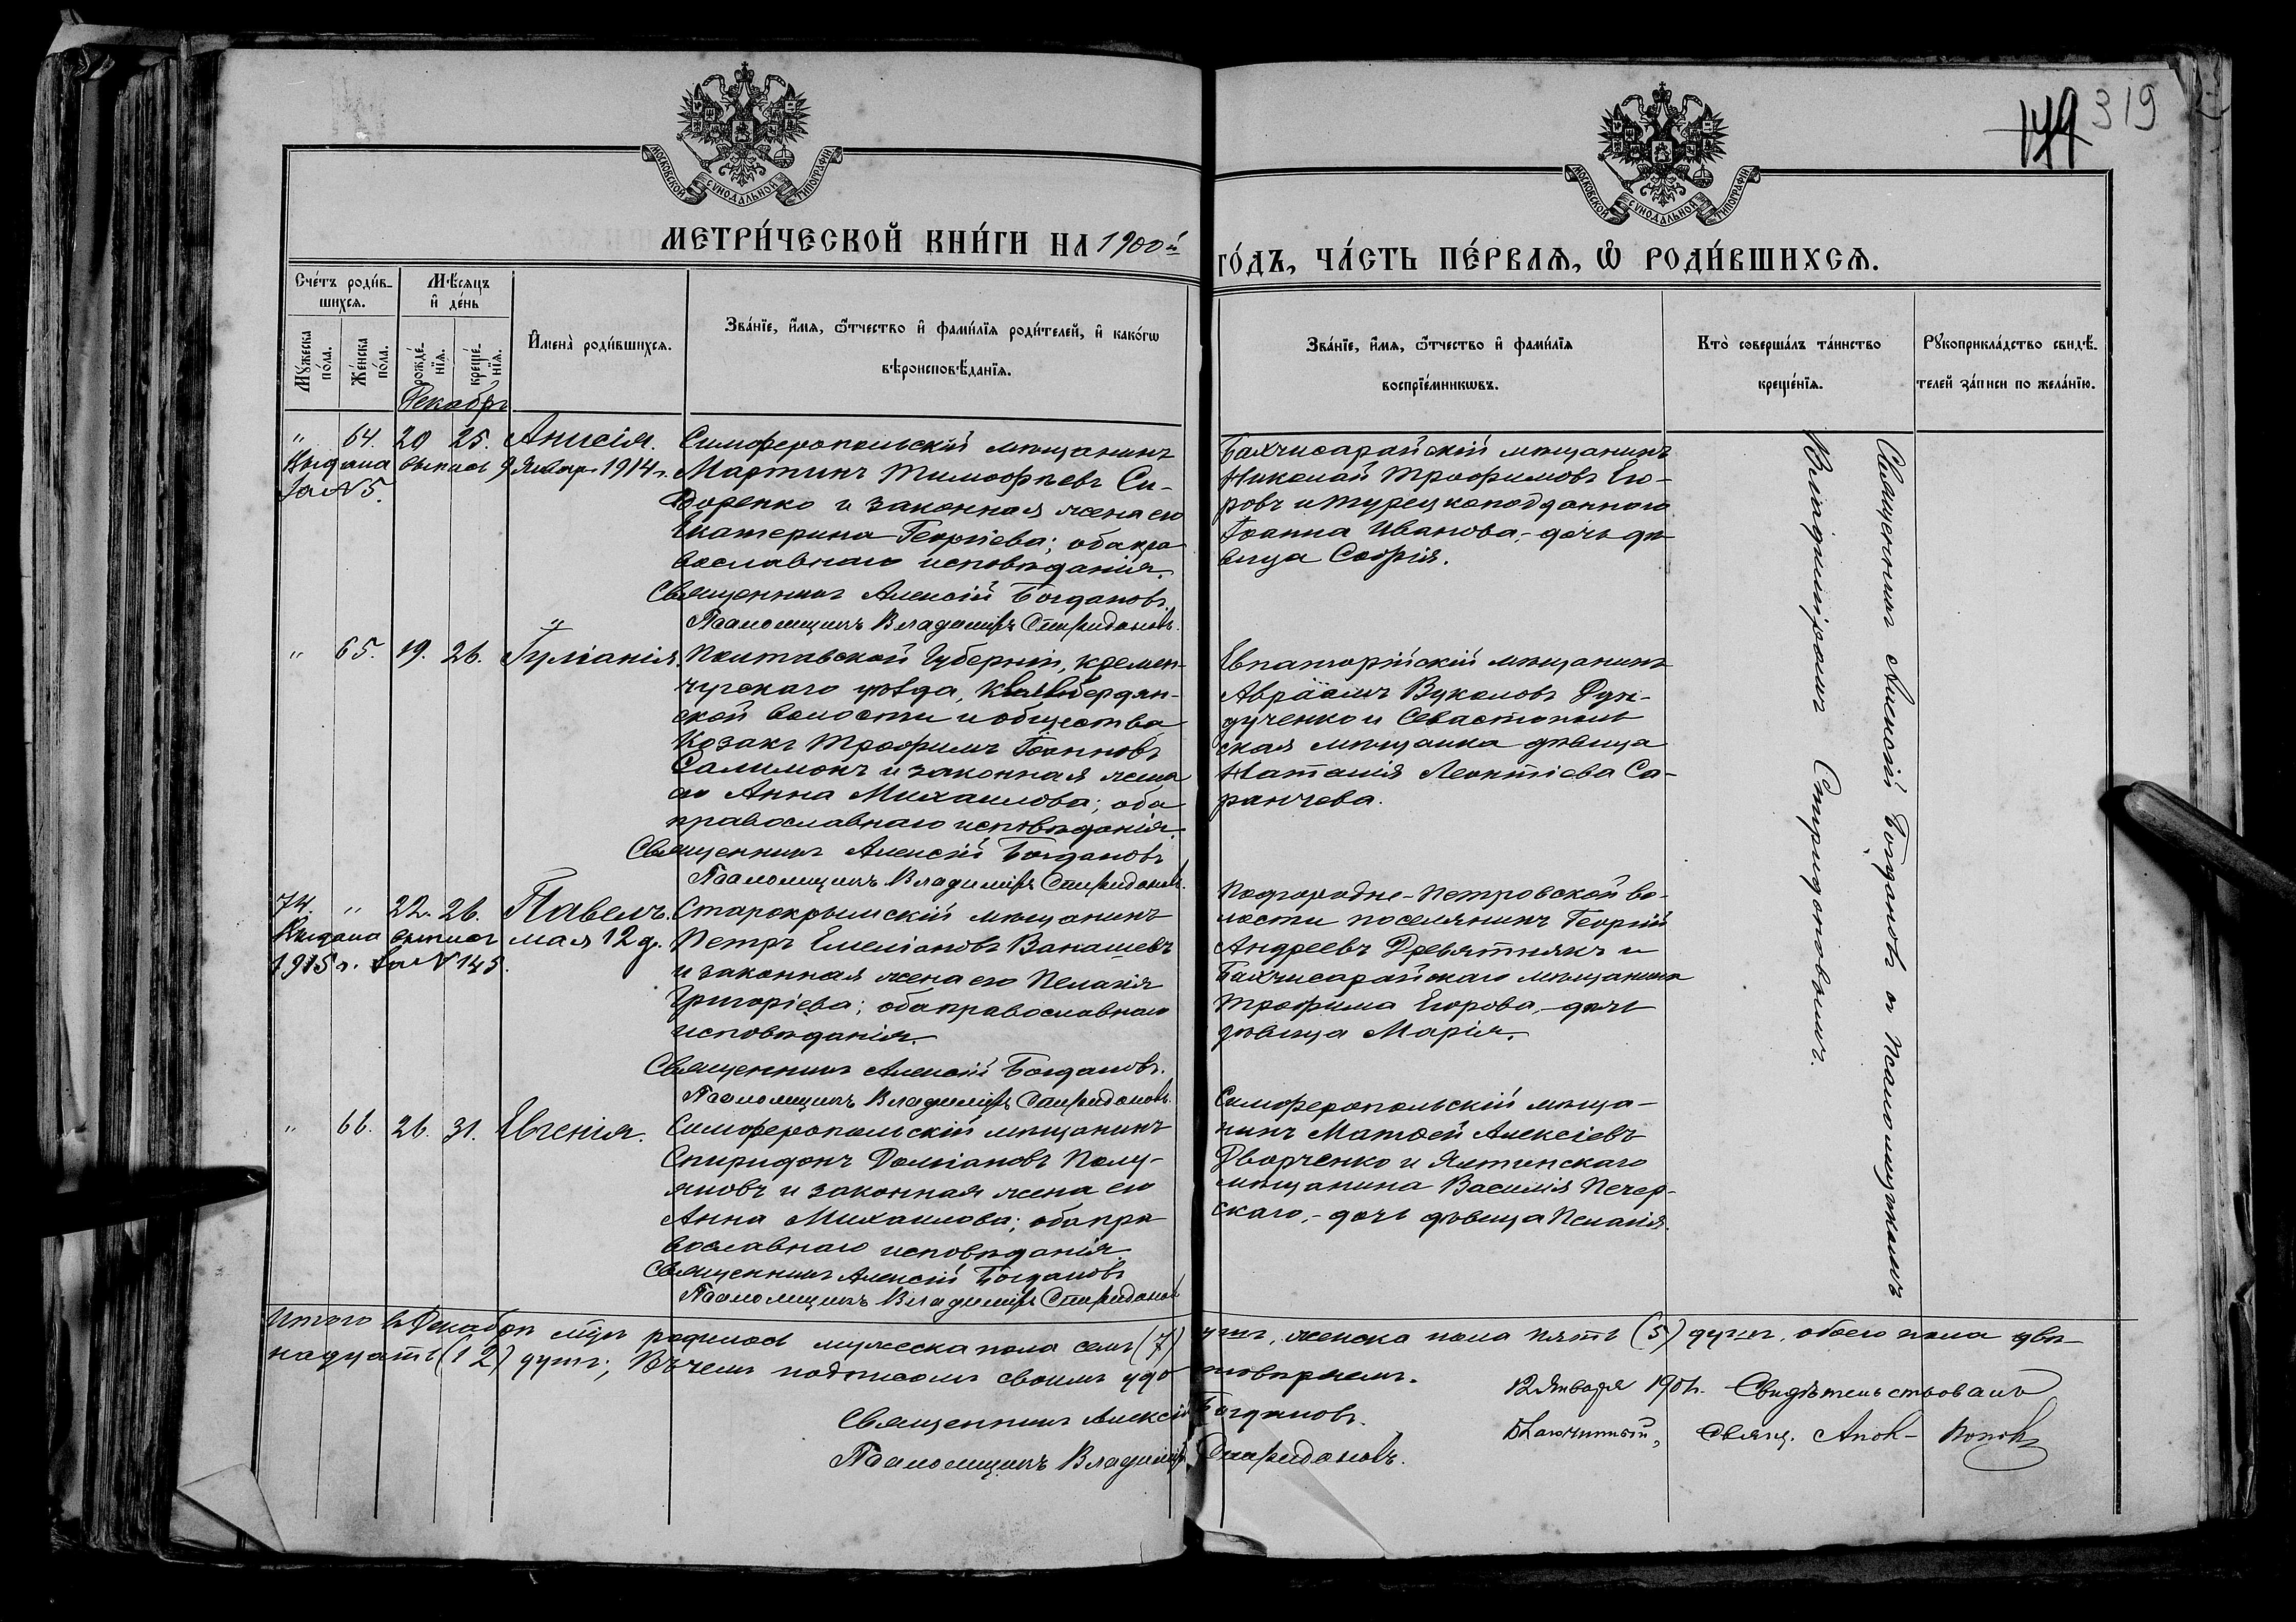 319
149
МОСКОВСКОЙ СѴНОДАЛЬНОЙ ТИПОГРАФІИ
МОСКОВСКОЙ СѴНОДАЛЬНОЙ ТИПОГРАФІИ
МЕТРИ́ЧЕСКОЙ КНИ́ГИ НА 1900й
ГО́ДЪ, ЧА́СТЬ ПЕ́РВАѦ, Ѡ҆ РОДИ́ВШИХСѦ.
Сче́тъ роди́в-
шихсѧ.
Мѣ́сѧцъ
и҆ де́нь
Мꙋ́жеска
по́ла.
Же́нска
по́ла.
рожде́-
нїѧ.
креще́-
нїѧ.
И҆мена̀ роди́вшихсѧ.
Зва́нїе, и҆́мѧ, ѻ҆́тчество и҆ фами́лїѧ роди́телей, и҆ како́гѡ
вѣроисповѣ́данїѧ.
Зва́нїе, и҆́мѧ, ѻ҆́тчество и҆ фами́лїѧ
воспрїе́мникѡвъ.
Кто̀ соверша́лъ та́инство
креще́нїѧ.
Рꙋкоприкла́дство свидѣ́-
телей за́писи по жела́нїю.
Декабрь
" 64. 20 25. Анисія.
Выдана выпись 9 Января 1914 г.
за № 5.
Симферопольскій мѣщанинъ
Мартинъ Тимофѣевъ Си-
доренко и законная жена его
Екатерина Георгіева; оба пра
вославнаго исповѣданія.
Священникъ Алексій Богдановъ.
Псаломщикъ Владиміръ Спиридоновъ.
Бахчисарайскій мѣщанинъ
Николай Трофимовъ Его-
ровъ и турецкоподданнаго
Іоанна Иванова,- дочь дѣ
вица Софія.
" 65. 19. 26. Іуліанія.
Полтавской Губерніи, Кремен-
чугскаго уѣзда,
ской волости и общества
Козакъ Трофимъ Іоанновъ
Салимонъ и законная жена
его Анна Михаилова; оба
православнаго исповѣданія.
Священникъ Алексій Богдановъ
Псаломщикъ Владиміръ Спиридоновъ.
Евпаторійскій мѣщанинъ
Авраамъ Вуколовъ Дун-
дученко и Севастополь
ская мѣщанка дѣвица
Наталія Леонтіева Са-
ранчева.
74. " 22. 26. Павелъ.
Выдана выпись мая 12 д.
1915 г. за № 145.
Старокрымскій мѣщанинъ
Петръ Емеліановъ Ванашевъ
и законная жена его Пелагія
Григоріева; оба православнаго
исповѣданія.
Священникъ Алексій Богдановъ.
Псаломщикъ Владиміръ Спиридоновъ.
Подгородне-Петровской во-
лости поселянинъ Георгій
Андреевъ Древятнякъ и
Бахчисарайскаго мѣщанина
Трофима Егорова,- дочь
дѣвица Марія.
" 66. 26. 31. Евгенія.
Симферопольскій мѣщанинъ
Спиридонъ Доміановъ Полу-
яновъ и законная жена его
Анна Михаилова; оба пра
вославнаго исповѣданія.
Священникъ Алексій Богдановъ
Псаломщикъ Владиміръ Спиридоновъ
Симферопольскій мѣща-
нинъ Матѳей Алексіевъ
Дворченко и Ялтинскаго
мѣщанина Василія Печер-
скаго,- дочь дѣвица Пелагія.
Священникъ Алексій Богдановъ и Псаломщикомъ
Владиміромъ Спиридоновымъ.
Итого въ Декабрѣ мѣс. родилось мужеска пола семь (7) душъ, женска пола пять (5) душъ, обоего пола двѣ-
надцать (12) душъ; въ чемъ подписомъ своимъ удо стовѣряемъ.
Священникъ Алексій Богдановъ.
Псаломщикъ Владиміръ Спиридоновъ.
12 Января 1901 г. Свидѣтельствовалъ
Благочинный, Свящ. Попов